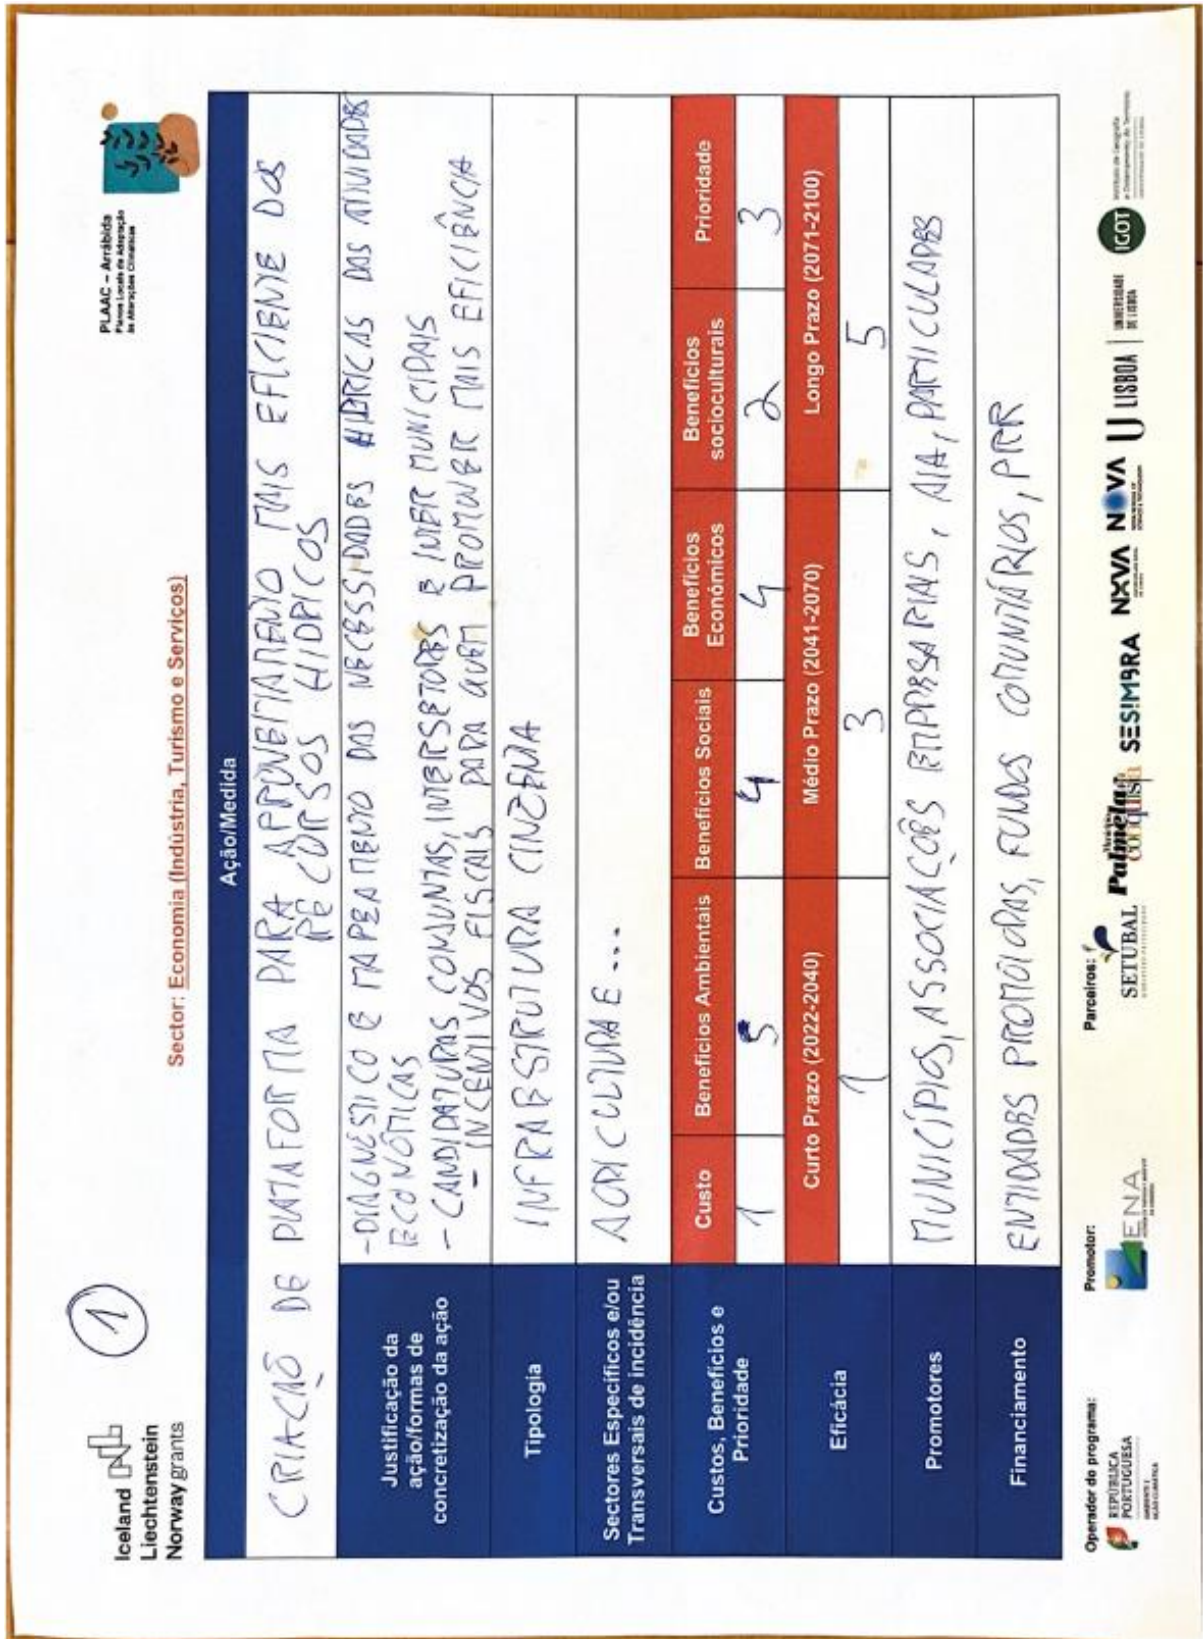 Iceland
Liechtenstein
Norway grants
1
PLAAC – Arrábida
Planos Locais de Adaptação
às Alterações Climáticas
Sector: Economia (Indústria, Turismo e Serviços)
Ação/Medida
CRIAÇÃO DE PLATAFORMA PARA APROVEITAMENTO MAIS EFICIENTE DOS
RECURSOS HIDRICOS
Justificação da
ação/formas de
concretização da ação
- DIAGNÓSTICO E MAPEAMENTO DAS NECESSIDADES HIDRICAS DAS ATIVIDADES
ECONÓMICAS
- CANDIDATURAS CONJUNTAS, INTERSETORES E INTER MUNICIPAIS
- INCENTIVOS FISCAIS PARA QUEM PROMOVER MAIS EFICIÊNCIA
Tipologia
INFRAESTRUTURA CINZENTA
Sectores Específicos e/ou
Transversais de incidência
AGRICULTURA E ...
Custos, Benefícios e
Prioridade
Custo
Benefícios Ambientais
Benefícios Sociais
Benefícios
Económicos
Benefícios
socioculturais
Prioridade
1
5
4
4
2
3
Eficácia
Curto Prazo (2022-2040)
Médio Prazo (2041-2070)
Longo Prazo (2071-2100)
1
3
5
Promotores
MUNICÍPIOS, ASSOCIAÇÕES EMPRESARIAIS, AIA, PARTICULARES
Financiamento
ENTIDADES PROMOTORAS, FUNDOS COMUNITÁRIOS, PRR
Operador do programa:
REPÚBLICA
PORTUGUESA
AMBIENTE E
AÇÃO CLIMÁTICA
Promotor:
ENA
Parceiros:
SETUBAL
Palmela
conquista
SESIMBRA
NOVA
NOVA
U LISBOA
UNIVERSIDADE
DE LISBOA
IGOT
Instituto de Geografia
e Ordenamento do Território